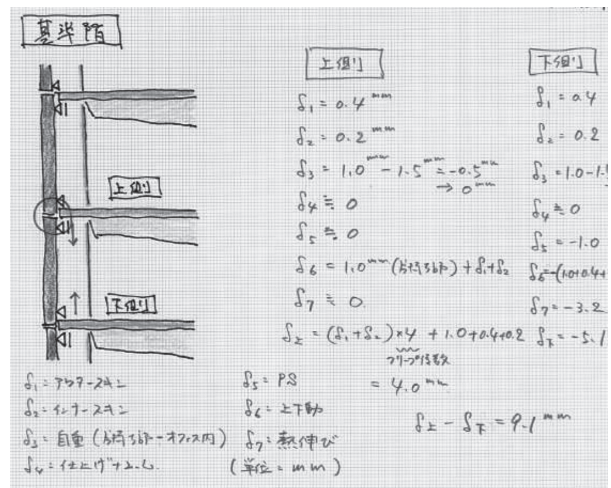 基準階
上側
下側
上側
δ₁ = 0.4 mm
δ₂ = 0.2 mm
δ₃ = 1.0 mm - 1.5 mm = -0.5 mm
→ 0 mm
δ₄ ≒ 0
δ₅ ≒ 0
δ₆ = 1.0 mm (片持ち部) + δ₁+δ₂
δ₇ ≒ 0.
δ上 = (δ₁+δ₂)×4 + 1.0+0.4+0.2
クリープ係数
= 4.0 mm
下側
δ₁ = 0.4
δ₂ = 0.2
δ₃ = 1.0-1.
δ₄ ≒ 0
δ₅ = -1.0
δ₆ = -(1.0+0.4+
δ₇ = -3.2
δ下 = -5.1
δ上 - δ下 = 9.1 mm
δ₁: アウタースキン
δ₂: インナースキン
δ₃: 自重 (片持ち部-オフィス内)
δ₄: 仕上げ
δ₅: PS
δ₆: 上下動
δ₇: 熱伸び
(単位 = mm)